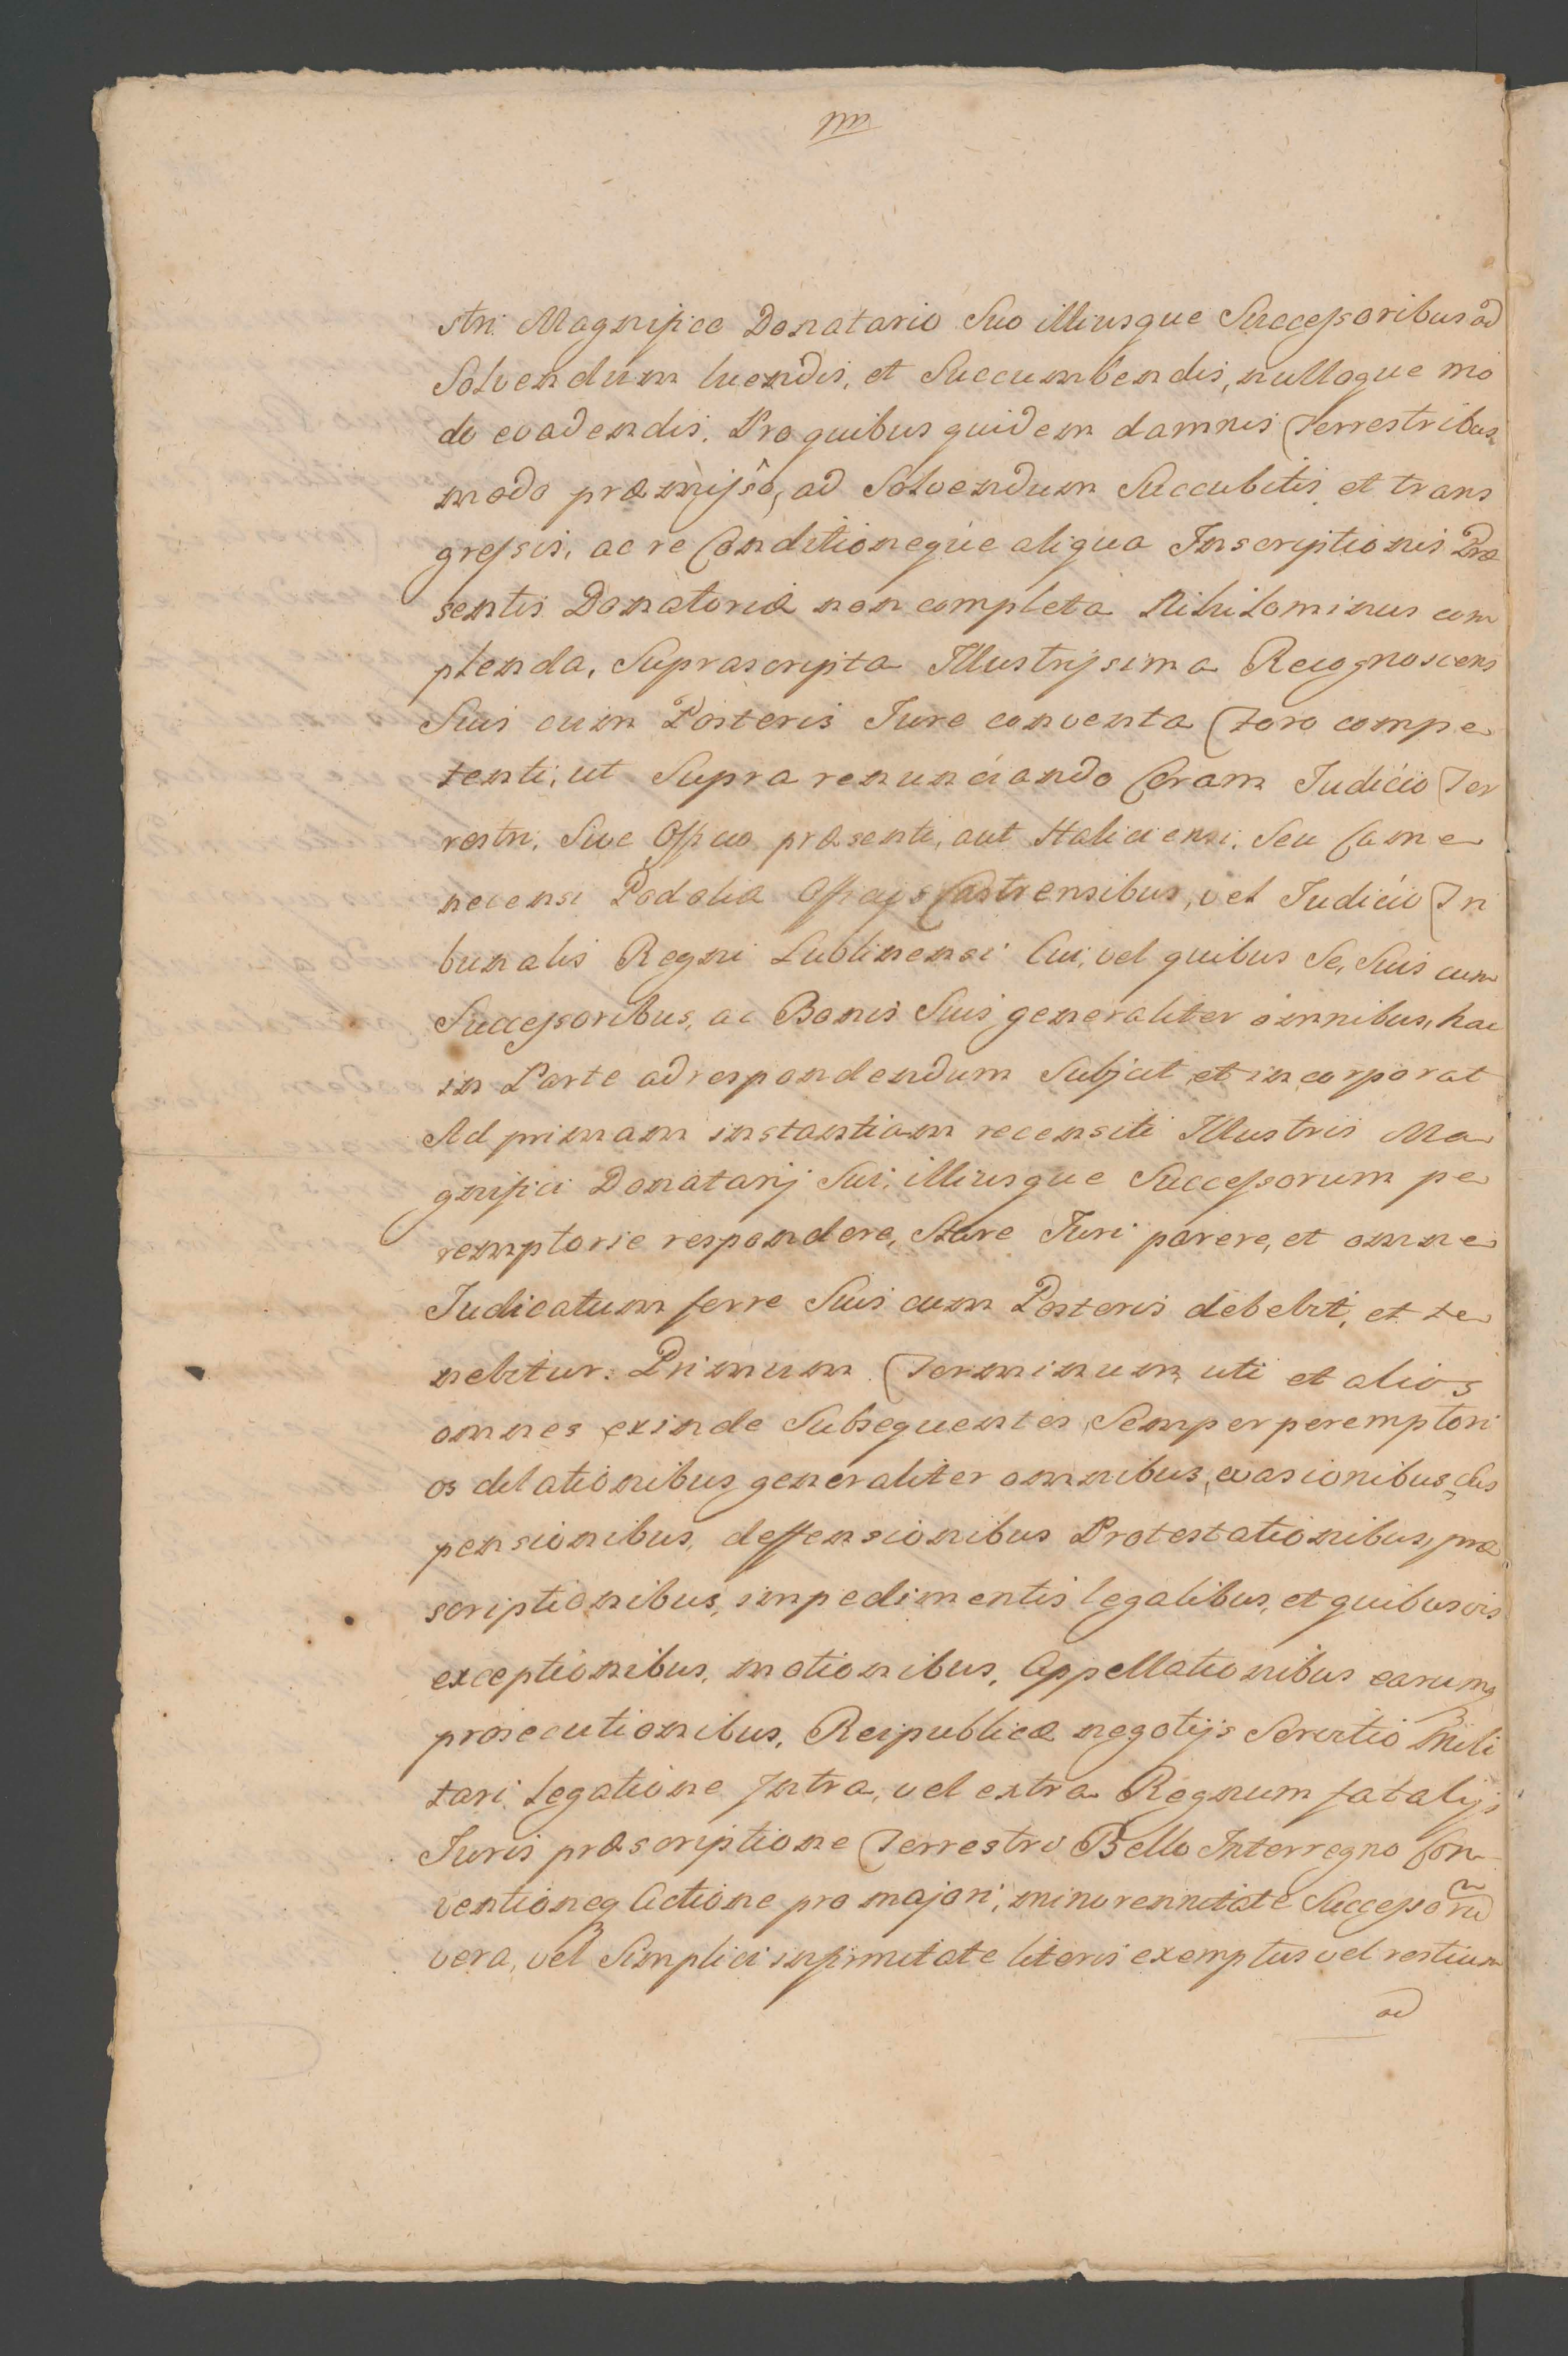 stri Magnifico Donatario Suo illiusque Successoribus ad
Solvendum luendis, et Succumbendis, nulloque mo
do evadendis. Pro quibus quidem damnis Terrestribus
modo præmisso, ad Solvendum Succubitis et trans
gressis, ac re Conditioneque aliqua Inscriptionis Præ
sentis Donatoriæ non completa Nihilominus com
plenda, Suprascripta Illustrissima Recognoscens
Suis cum Posteris Jure conventa Foro compe
tenti, ut Supra renunciando Coram Judicio Ter
restri, Sive Officio præsenti, aut Haliciensi, Seu Came
necensi Podoliæ Officijs Castrensibus, vel Judicio Tri
bunalis Regni Lublinensi Cui, vel quibus Se, Suis cum
Successoribus, ac Bonis Suis generaliter omnibus, hac
in Parte ad respondendum Subjcit et incorporat
Ad primam instantiam recensiti Illustris Ma
gnifici Donatarij Sui, illiusque Successorum pe
remptorie respondere, Stare Juri parere, et omne
Judicatum ferre Suis cum Posteris debebit, et te
nebitur. Primum Terminum, uti et alios
omnes exinde Subsequentes Semper peremptori
os dilationibus generaliter omnibus, evasionibus, dis
pensionibus, deffensionibus Protestationibus, præ
scriptionibus, impedimentis legalibus, et quibusvis
exceptionibus, motionibus, Appellationibus earumq
prosecutionibus, Reipublicæ negotijs Servitio Mili
tari Legatione Intra, vel extra Regnum fatalijs
Juris præscriptione Terrestro Bello Interregno Con
ventioneq Actione pro majori, minorennitate Successorũ
vera, vel Simplici infirmitate literis exemptus vel restium
ad